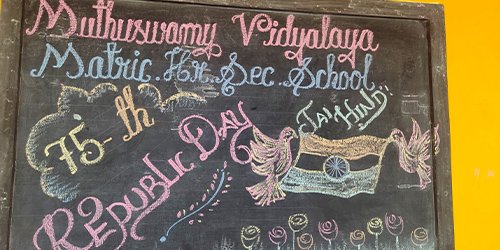 Muthuswamy Vidyalaya
Matric. Hr. Sec. School
75-th
Jai Hind!!
Republic Day